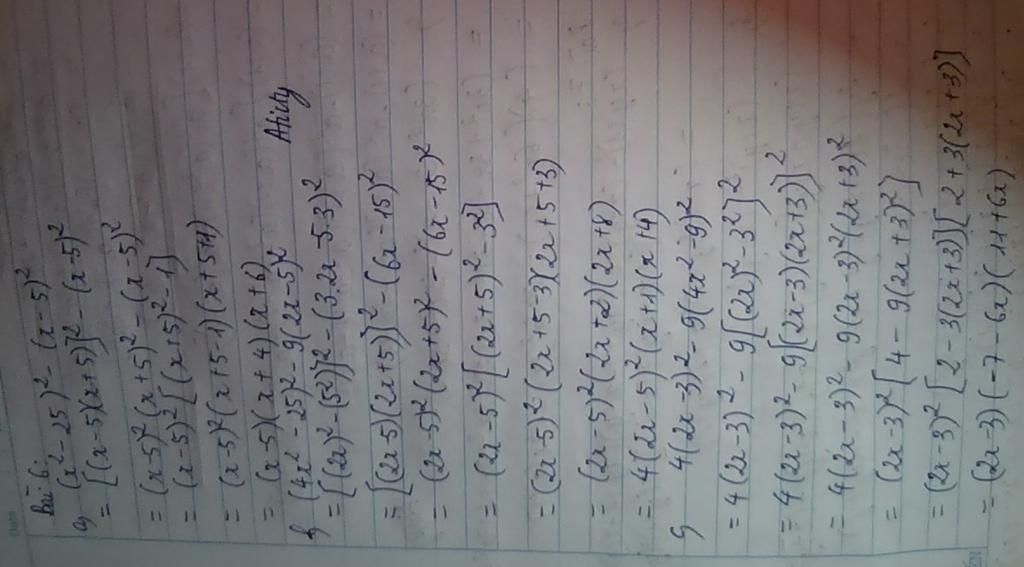 Bài 6.
a) (x²-25)² - (x-5)²
= [(x-5)(x+5)]² - (x-5)²
= (x-5)²(x+5)² - (x-5)²
= (x-5)²[(x+5)² - 1]
= (x-5)²(x+5-1)(x+5+1)
= (x-5)(x+4)(x+6)
b) (4x²-25)² - 9(2x-5)²
= [(2x)²-(5²)]² - (3.2x-5.3)²
= [(2x-5)(2x+5)]² - (6x-15)²
= (2x-5)²(2x+5)² - (6x-15)²
= (2x-5)²[(2x+5)² - 3²]
= (2x-5)²(2x+5-3)(2x+5+3)
= (2x-5)²(2x+2)(2x+8)
= 4(2x-5)²(x+1)(x+14)
c) 4(2x-3)² - 9(4x²-9)²
= 4(2x-3)² - 9[(2x)²-3²]²
= 4(2x-3)² - 9[(2x-3)(2x+3)]²
= 4(2x-3)² - 9(2x-3)²(2x+3)²
= (2x-3)²[4 - 9(2x+3)²]
= (2x-3)²[2-3(2x+3)][2+3(2x+3)]
= (2x-3)(-7-6x)(11+6x)